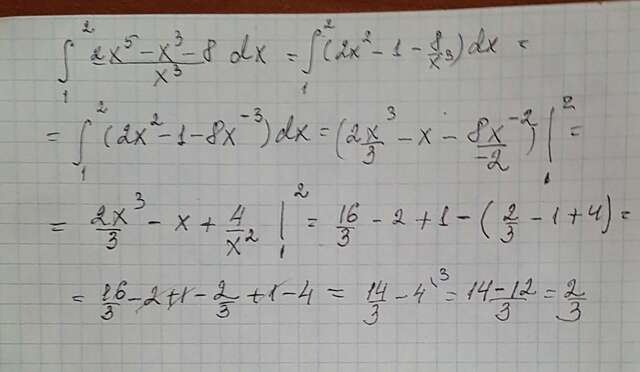 ∫₁² (2x⁵ - x³ - 8)/x³ dx = ∫₁² (2x² - 1 - 8/x³) dx =
= ∫₁² (2x² - 1 - 8x⁻³) dx = (2x³/3 - x - 8x⁻²/-2) |₁² =
= 2x³/3 - x + 4/x² |₁² = 16/3 - 2 + 1 - (2/3 - 1 + 4) =
= 16/3 - 2 + 1 - 2/3 + 1 - 4 = 14/3 - 4\³ = 14-12/3 = 2/3